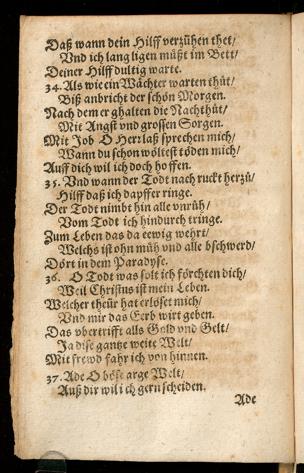 Daß wann dein Hilff verzühen thet/
Vnd ich lang ligen müßt im Bett/
Deiner Hilff dultig warte.
34. Als wie ein Wächter warten thůt/
Biß anbricht der schön Morgen.
Nach dem er ghalten die Nachthůt/
Mit Angst vnd grossen Sorgen.
Mit Job O Herr laß sprechen mich/
Wann du schon wöltest töden mich/
Auff dich wil ich doch hoffen.
35. Vnd wann der Todt nach ruckt herzů/
Hilff daß ich dapffer ringe.
Der Todt nimbt hin alle vnrůh/
Vom Todt ich hindurch tringe.
Zum Leben das da eewig wehrt/
Welchs ist ohn můh vnd alle bschwerd/
Dört in dem Paradyse.
36. O Todt was solt ich förchten dich/
Weil Christus ist mein Leben.
Welcher theür hat erlöset mich/
Vnd mir das Eerb wirt geben.
Das vbertrifft alls Gold vnd Gelt/
Ja dise gantze weite Welt/
Mit frewd fahr ich von hinnen.
37. Ade O böse arge Welt/
Auß dir wil ich gern scheiden.
Ade